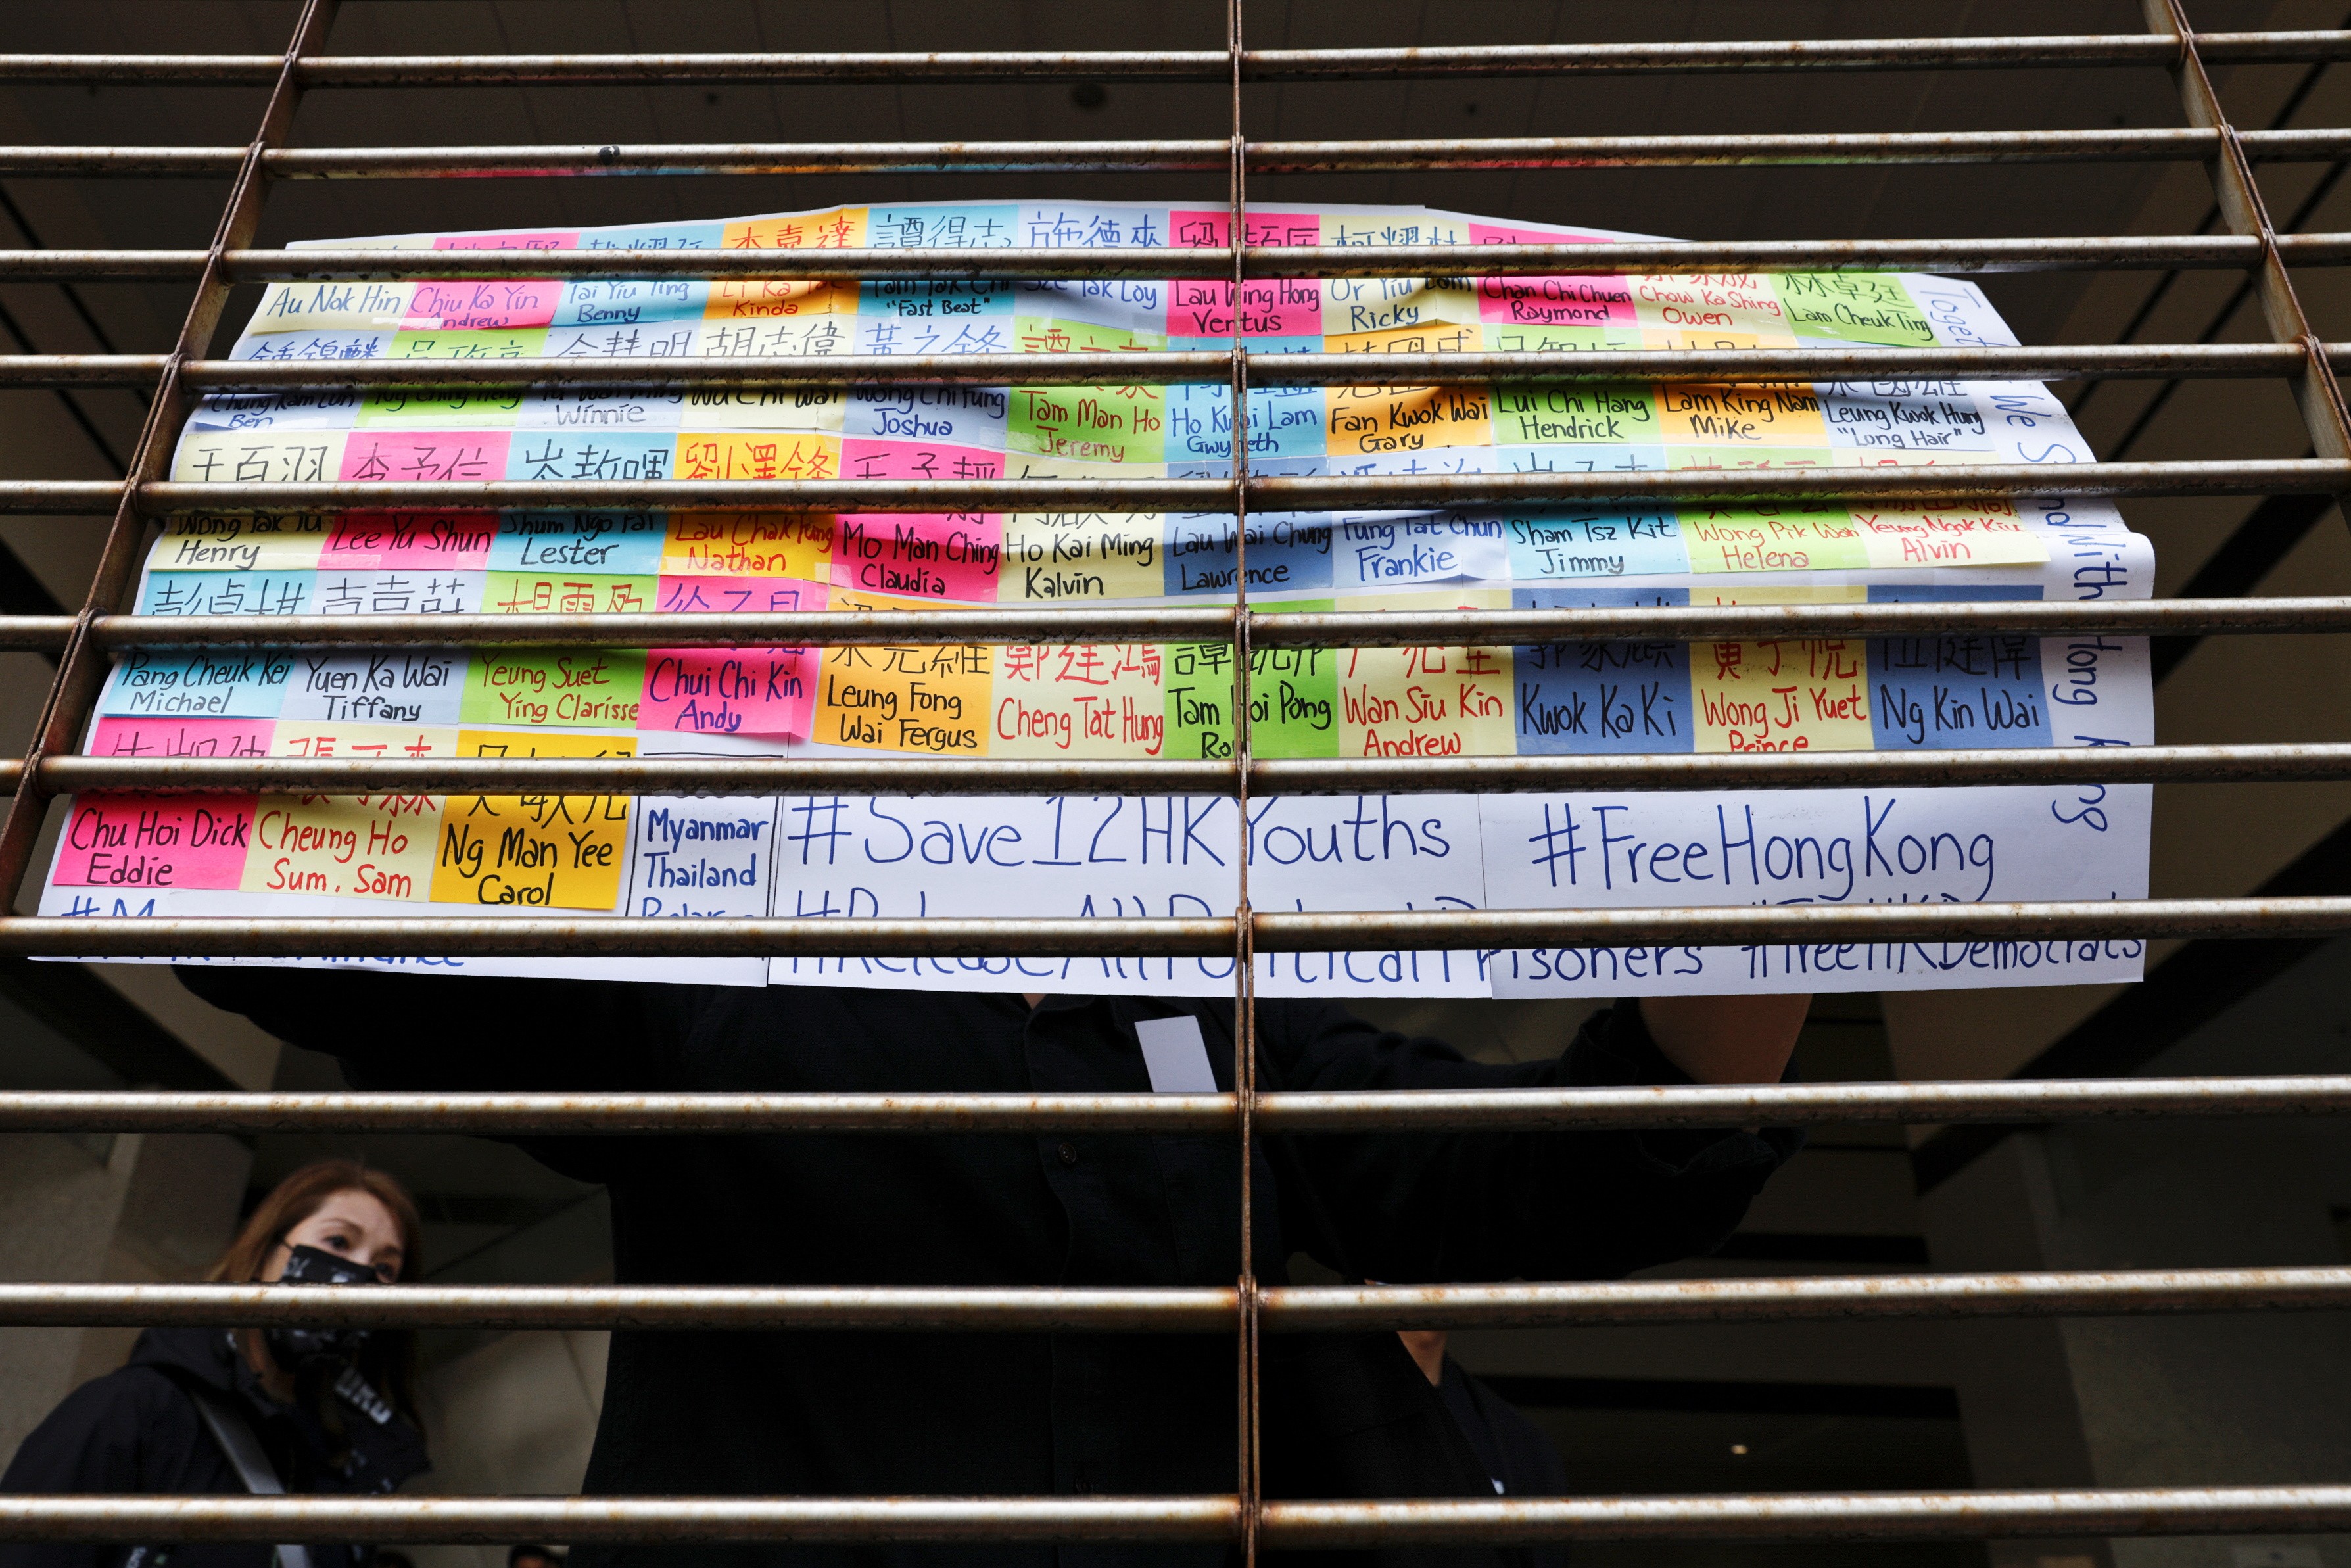 李嘉達 譚得志 施德來
Au Nok Hin Chiu Ka Yin Tai Yiu Ting Li Ka Tat Tam Tak Chi Sze Tak Loy Lau Wing Hong Or Yiu Lam Chan Chi Chuen Chow Ka Shing Lam Cheuk Ting
Andrew Benny Kinda "Fast Beat" Ventus Ricky Raymond Owen
鍾錦麟 余慧明 胡志偉 黃之鋒
Chung Kam Lun Ng Ching Heng Yu Wai Ming Wu Chi Wai Wong Chi Fung Tam Man Ho Ho Kwai Lam Fan Kwok Wai Lui Chi Hang Lam King Nam Leung Kwok Hung
Ben Winnie Joshua Jeremy Gwyneth Gary Hendrick Mike "Long Hair"
王百羽 李予信 岑敖暉 劉澤鋒
Wong Pak Yu Lee Yu Shun Shum Ngo Fai Lau Chak Fung Mo Man Ching Ho Kai Ming Lau Wai Chung Fung Tat Chun Sham Tsz Kit Wong Pik Wan Yeung Ngok Kiu
Henry Lester Nathan Claudia Kalvin Lawrence Frankie Jimmy Helena Alvin
彭卓棋 袁嘉蔚
梁晃維 鄭達鴻 譚凱邦
Pang Cheuk Kei Yuen Ka Wai Yeung Suet Chui Chi Kin Leung Fong Cheng Tat Hung Tam Hoi Pong Wan Siu Kin Kwok Ka Ki Wong Ji Yuet Ng Kin Wai
Michael Tiffany Ying Clarisse Andy Wai Fergus Andrew Prince
Chu Hoi Dick Cheung Ho Ng Man Yee
Eddie Sum, Sam Carol
Myanmar
Thailand
#Save12HKYouths #FreeHongKong
#ReleaseAllPoliticalPrisoners #FreeHKDemocrats
With Hong Kong